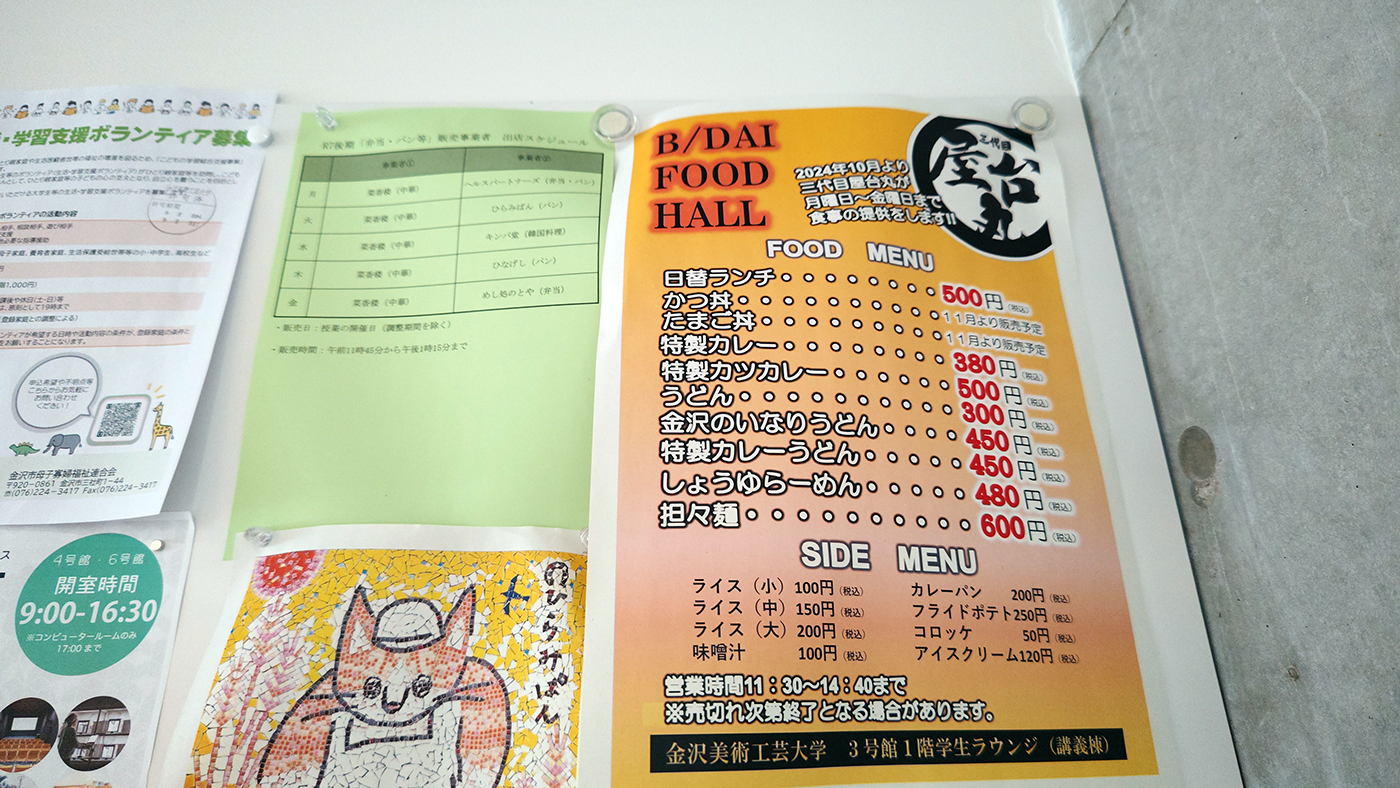 ・学習支援ボランティア募集
ボランティアの活動内容
申込希望や不明点等
こちらからお気軽に
お問い合わせ
ください!
金沢市母子寡婦福祉連合会
〒920-0861 金沢市三社町1-44
(076)224-3417 Fax(076)224-3417
4号館・6号館
開室時間
9:00-16:30
※コンピュータールームのみ
17:00まで
R7後期「弁当・パン等」販売事業者 出店スケジュール
事業者① 事業者②
月 菜香楼(中華) ヘルスパートナーズ(弁当・パン)
火 菜香楼(中華) ひらみぱん(パン)
水 菜香楼(中華) キンパ堂(韓国料理)
木 菜香楼(中華) ひなげし(パン)
金 菜香楼(中華) めし処のとや(弁当)
・販売日:授業の開催日(調整期間を除く)
・販売時間:午前11時45分から午後1時15分まで
ひらみぱん
B/DAI
FOOD
HALL
2024年10月より
三代目屋台丸が
月曜日~金曜日まで
食事の提供をします!!
三代目
屋台丸
FOOD MENU
日替ランチ・・・・・・・・・500円(税込)
かつ丼・・・・・・・・・・11月より販売予定
たまご丼・・・・・・・・・11月より販売予定
特製カレー・・・・・・・・・380円(税込)
特製カツカレー・・・・・・・500円(税込)
うどん・・・・・・・・・・・300円(税込)
金沢のいなりうどん・・・・450円(税込)
特製カレーうどん・・・・・450円(税込)
しょうゆらーめん・・・・・480円(税込)
担々麺・・・・・・・・・・600円(税込)
SIDE MENU
ライス(小) 100円(税込) カレーパン 200円(税込)
ライス(中) 150円(税込) フライドポテト250円(税込)
ライス(大) 200円(税込) コロッケ 50円(税込)
味噌汁 100円(税込) アイスクリーム120円(税込)
営業時間11:30~14:40まで
※売切れ次第終了となる場合があります。
金沢美術工芸大学 3号館1階学生ラウンジ(講義棟)